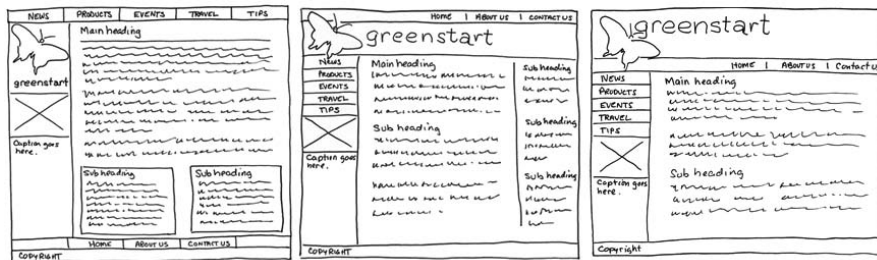 NEWS PRODUCTS EVENTS TRAVEL TIPS
Main heading
greenstart
Caption goes
here.
Sub heading Sub heading
HOME ABOUT US CONTACT US
COPYRIGHT
HOME | ABOUT US | CONTACT US
greenstart
NEWS
PRODUCTS
EVENTS
TRAVEL
TIPS
Caption goes
here.
Main heading
Sub heading
Sub heading
Sub heading
Sub heading
COPYRIGHT
greenstart
HOME | ABOUT US | Contact us
NEWS
PRODUCTS
EVENTS
TRAVEL
TIPS
Caption goes
here.
Main heading
Sub heading
Copyright